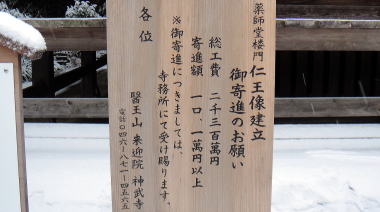 薬師堂楼門 仁王像建立
御寄進のお願い
総工費 二千三百萬円
寄進額 一口、一萬円以上
※御寄進につきましては、
寺務所にて受け賜ります。
各位
醫王山 来迎院 神武寺
電話〇四六-八七一-四五六五